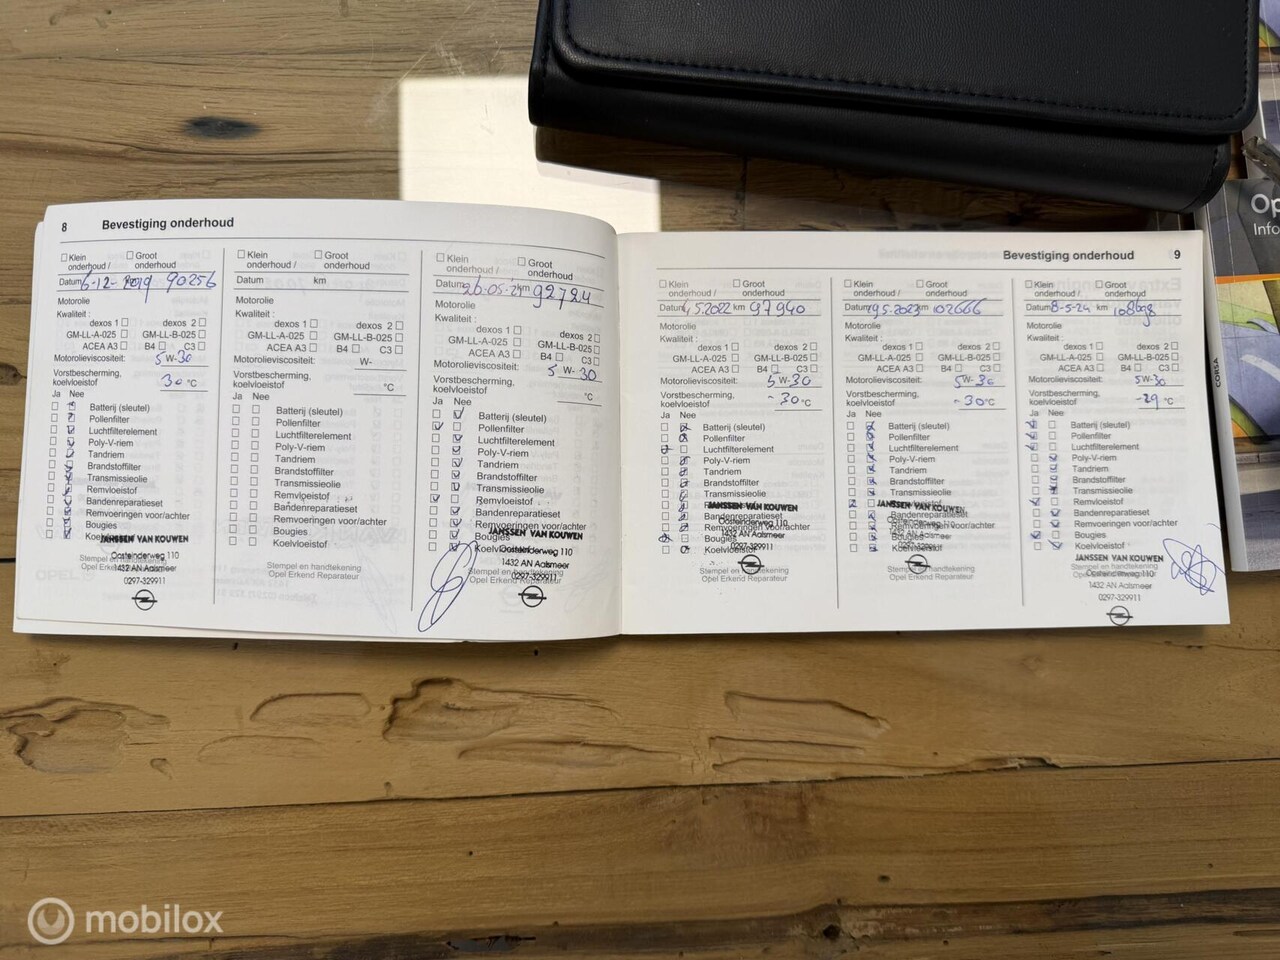 8 Bevestiging onderhoud
Klein onderhoud / Groot onderhoud
Datum 6-12-2019 90256
Motorolie
Kwaliteit :
dexos 1 dexos 2
GM-LL-A-025 GM-LL-B-025
ACEA A3 B4 C3
Motorolieviscositeit: 5 W-30
Vorstbescherming, koelvloeistof 30 °C
Ja Nee
Batterij (sleutel)
Pollenfilter
Luchtfilterelement
Poly-V-riem
Tandriem
Brandstoffilter
Transmissieolie
Remvloeistof
Bandenreparatieset
Remvoeringen voor/achter
Bougies
JANSSEN VAN KOUWEN
Oosteinderweg 110
1432 AN Aalsmeer
0297-329911
Klein onderhoud / Groot onderhoud
Datum km
Motorolie
Kwaliteit :
dexos 1 dexos 2
GM-LL-A-025 GM-LL-B-025
ACEA A3 B4 C3
Motorolieviscositeit: W-
Vorstbescherming, koelvloeistof °C
Ja Nee
Batterij (sleutel)
Pollenfilter
Luchtfilterelement
Poly-V-riem
Tandriem
Brandstoffilter
Transmissieolie
Remvloeistof
Bandenreparatieset
Remvoeringen voor/achter
Bougies
Koelvloeistof
Stempel en handtekening
Opel Erkend Reparateur
Klein onderhoud / Groot onderhoud
Datum 26-05-21 km 92724
Motorolie
Kwaliteit :
dexos 1 dexos 2
GM-LL-A-025 GM-LL-B-025
ACEA A3 B4 C3
Motorolieviscositeit: 5 W-30
Vorstbescherming, koelvloeistof °C
Ja Nee
Batterij (sleutel)
Pollenfilter
Luchtfilterelement
Poly-V-riem
Tandriem
Brandstoffilter
Transmissieolie
Remvloeistof
Bandenreparatieset
Remvoeringen voor/achter
Bougies
Koelvloeistof
JANSSEN VAN KOUWEN
Oosteinderweg 110
1432 AN Aalsmeer
Stempel en handtekening
0297-329911
Opel Erkend Reparateur
Bevestiging onderhoud 9
Klein onderhoud / Groot onderhoud
Datum 4.5.2022 km 97940
Motorolie
Kwaliteit :
dexos 1 dexos 2
GM-LL-A-025 GM-LL-B-025
ACEA A3 B4 C3
Motorolieviscositeit: 5 W-30
Vorstbescherming, koelvloeistof -30 °C
Ja Nee
Batterij (sleutel)
Pollenfilter
Luchtfilterelement
Poly-V-riem
Tandriem
Brandstoffilter
Transmissieolie
JANSSEN VAN KOUWEN
Bandenreparatieset
Oosteinderweg 110
Remvoeringen voor/achter
Bougies
0297-329911
Koelvloeistof
Stempel en handtekening
Opel Erkend Reparateur
Klein onderhoud / Groot onderhoud
Datum 19.5.2023 km 102666
Motorolie
Kwaliteit :
dexos 1 dexos 2
GM-LL-A-025 GM-LL-B-025
ACEA A3 B4 C3
Motorolieviscositeit: 5 W-30
Vorstbescherming, koelvloeistof -30 °C
Ja Nee
Batterij (sleutel)
Pollenfilter
Luchtfilterelement
Poly-V-riem
Tandriem
Brandstoffilter
Transmissieolie
JANSSEN VAN KOUWEN
Bandenreparatieset
Remvoeringen voor/achter
Bougies
Koelvloeistof
Stempel en handtekening
Opel Erkend Reparateur
Klein onderhoud / Groot onderhoud
Datum 8-5-24 km 108698
Motorolie
Kwaliteit :
dexos 1 dexos 2
GM-LL-A-025 GM-LL-B-025
ACEA A3 B4 C3
Motorolieviscositeit: 5W-30
Vorstbescherming, koelvloeistof -29 °C
Ja Nee
Batterij (sleutel)
Pollenfilter
Luchtfilterelement
Poly-V-riem
Tandriem
Brandstoffilter
Transmissieolie
Remvloeistof
Bandenreparatieset
Remvoeringen voor/achter
Bougies
Koelvloeistof
JANSSEN VAN KOUWEN
Oosteinderweg 110
1432 AN Aalsmeer
0297-329911
CORSA
mobilox